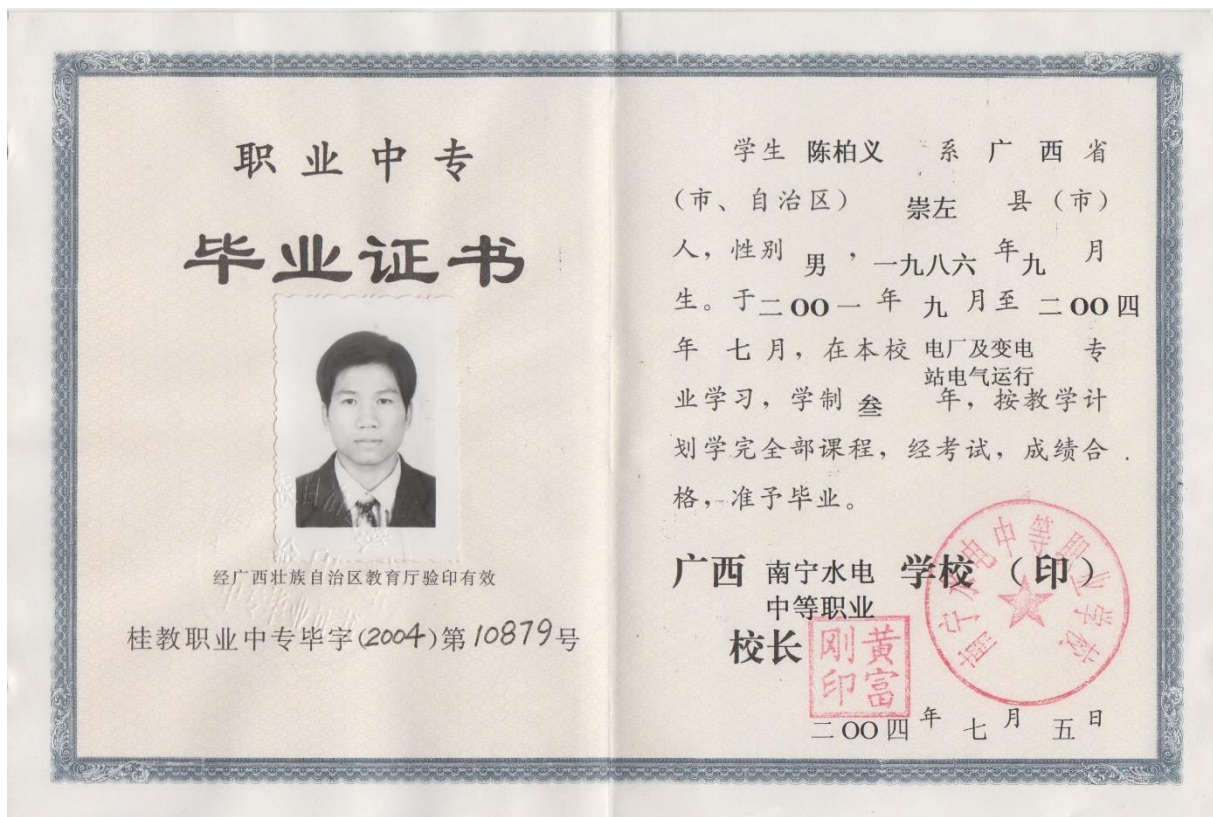 职业中专
毕业证书
经广西壮族自治区教育厅验印有效
桂教职业中专毕字(2004)第10879号
学生 陈柏义 系 广 西 省
(市、自治区) 崇左 县(市)
人,性别 男 ,一九八六 年 九 月
生。于二OO一 年 九 月至 二OO四
年 七 月,在本校 电厂及变电 专
站电气运行
业学习,学制 叁 年,按教学计
划学完全部课程,经考试,成绩合
格,准予毕业。
广西 南宁水电 学校 (印)
中等职业
校长
黄富
刚印
南宁水电中等职业学校
二OO四 年 七 月 五 日